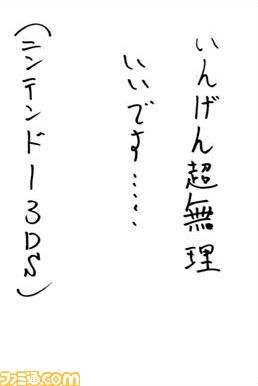 いんげん超無理
いいです……
(ニンテンドー3DS)
ファミ通.com